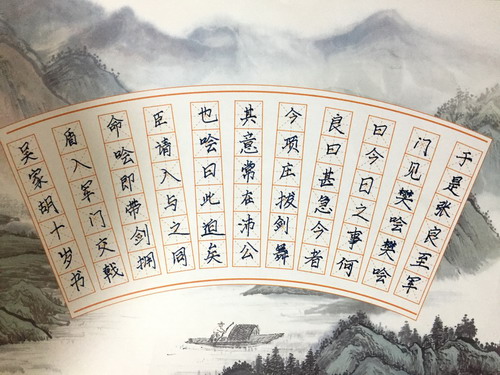 于是张良至军
门见樊哙樊哙
曰今日之事何
良曰甚急今者
今项庄拔剑舞
其意常在沛公
也哙曰此迫矣
臣请入与之同
命哙即带剑拥
盾入军门交戟
吴家胡十岁书